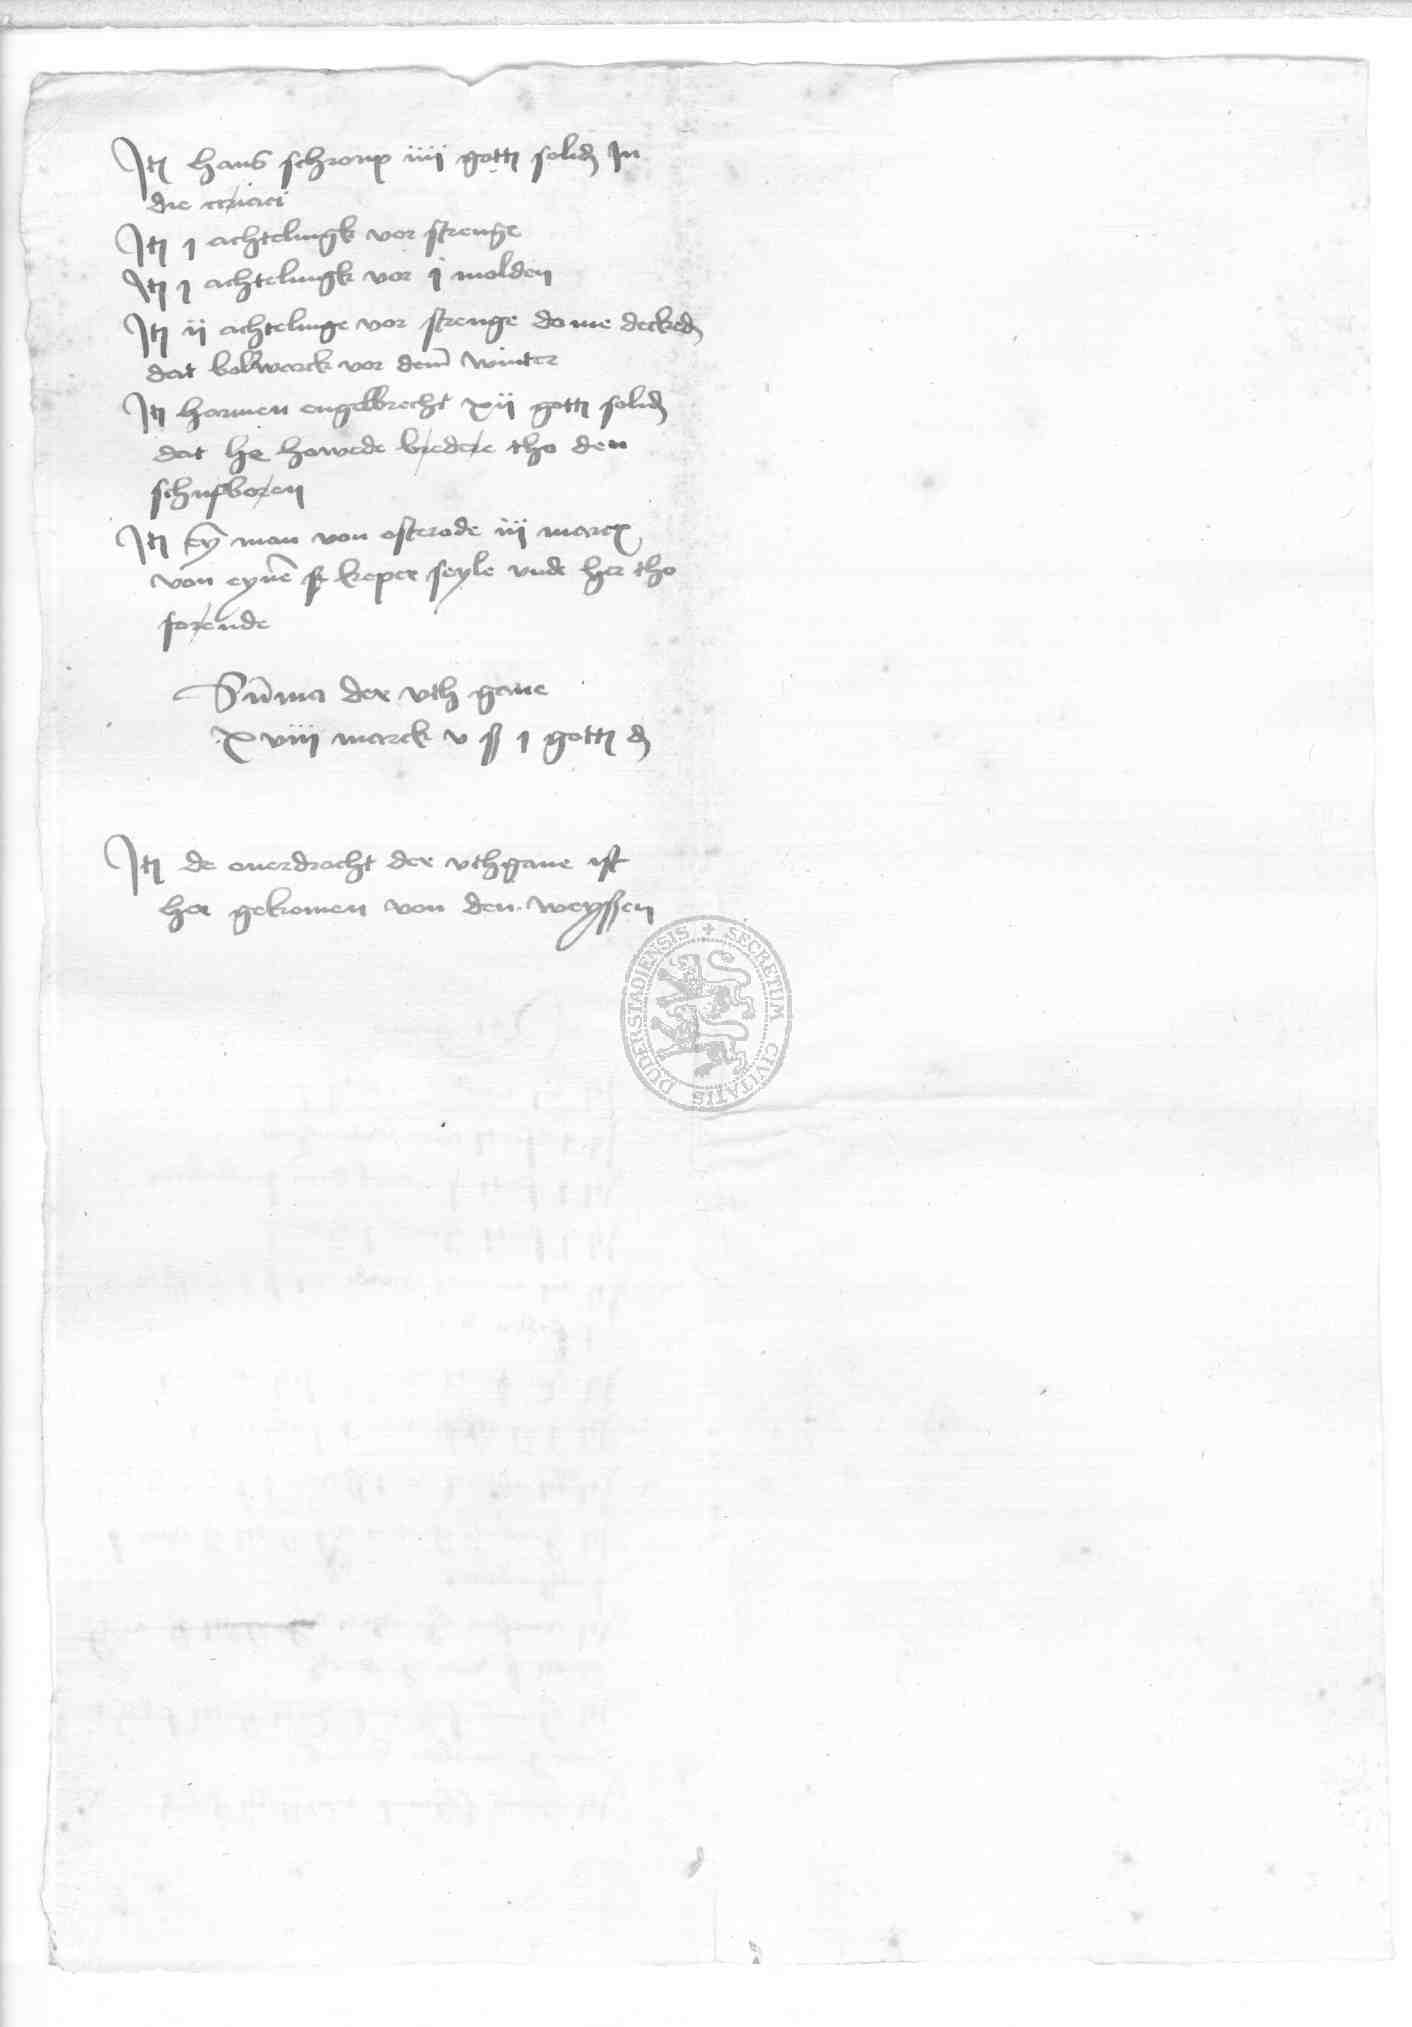 Itē hans schrop iiii gottī solid In
die
Itē j achtelingk vor strenge
Itē j achtelingk vor j molden
Itē ij achtelinge vor strenge do me decked
dat bolwarck vor dem winter
Itē harmen engelbrecht xij gottī solid
dat he howede bredere tho den
schufboren
Itē eȳ man von osterode iij marck
von eynē seyle vnde her tho
forende
Sūma der vth gaue
xviij marck v ß j gottī d
Itē de ouerdracht der vthgaue ist
her gekomen von den weyssen
SECRETUM CIVITATIS DUDERSTADIENSIS